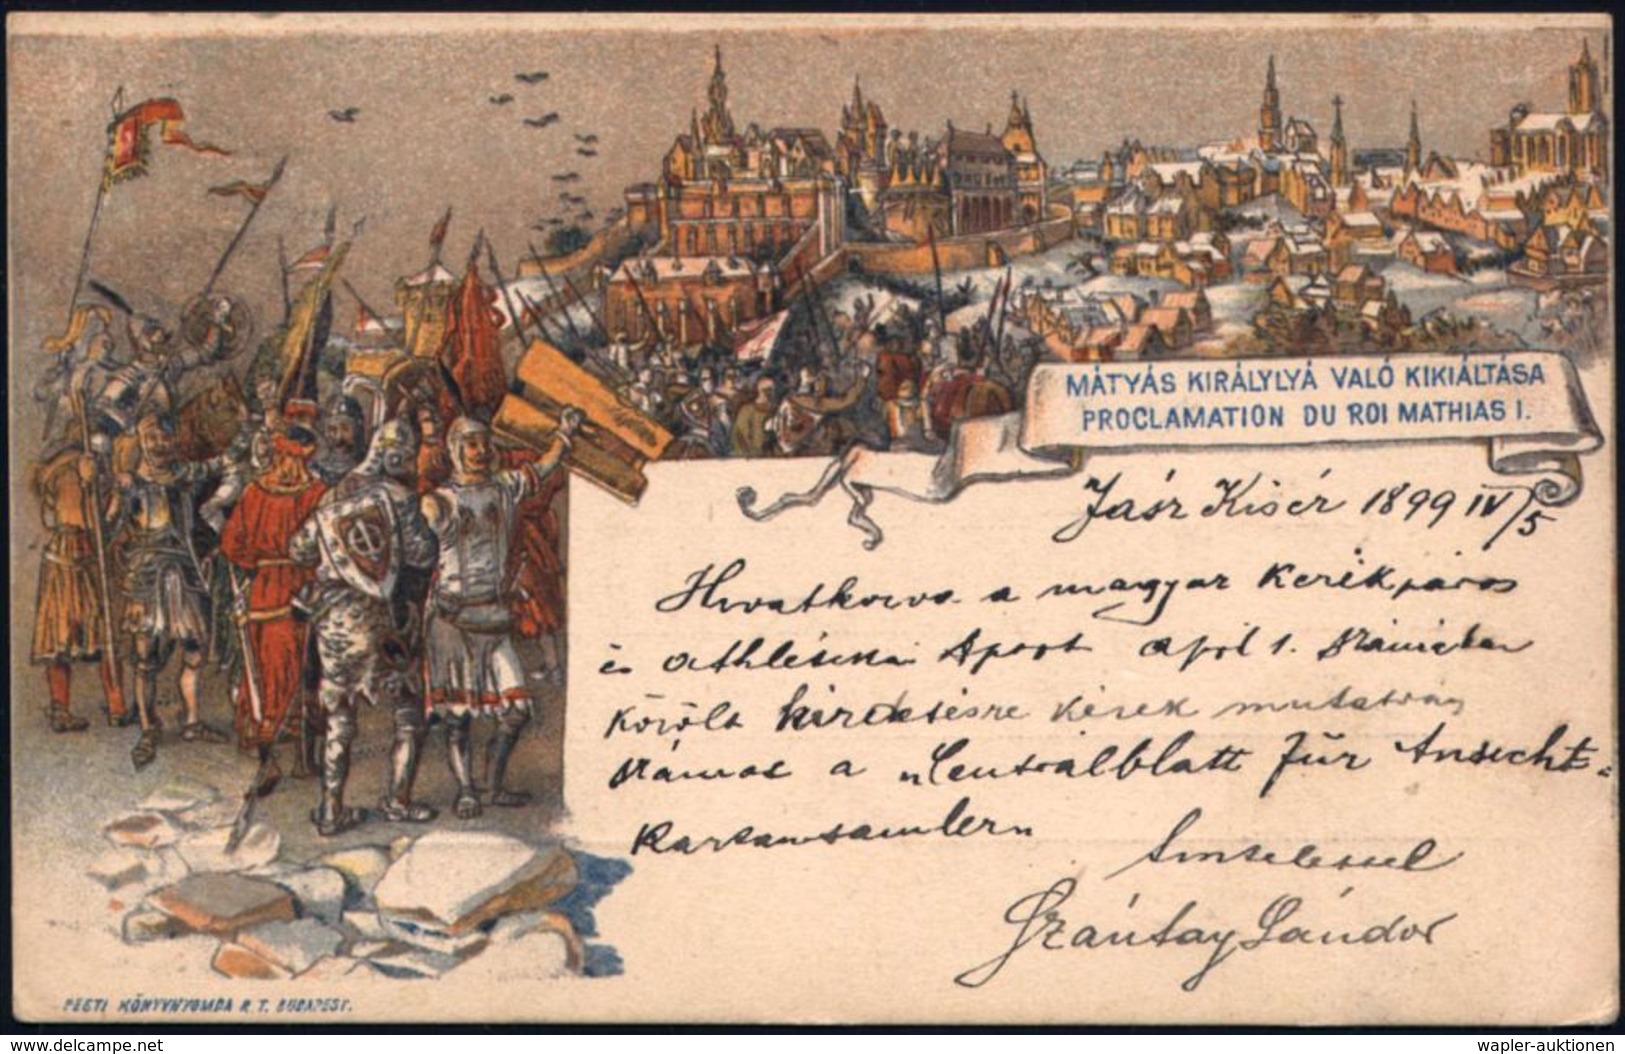 MÁTYÁS KIRÁLYLYÁ VALÓ KIKIÁLTÁSA
PROCLAMATION DU ROI MATHIAS I.
Jász Kisér 1899 IV/5
Hivatkozva a magyar Kerékpáros
és athlétikai Sport april 1. számában
közölt hirdetésére kérek mutatvány
számot a „Centralblatt für Ansicht=
Kartensamlern
Tisztelettel
Szántay Sándor
PESTI KÖNYVNYOMDA R. T. BUDAPEST.
www.delcampe.net
wapler-auktionen